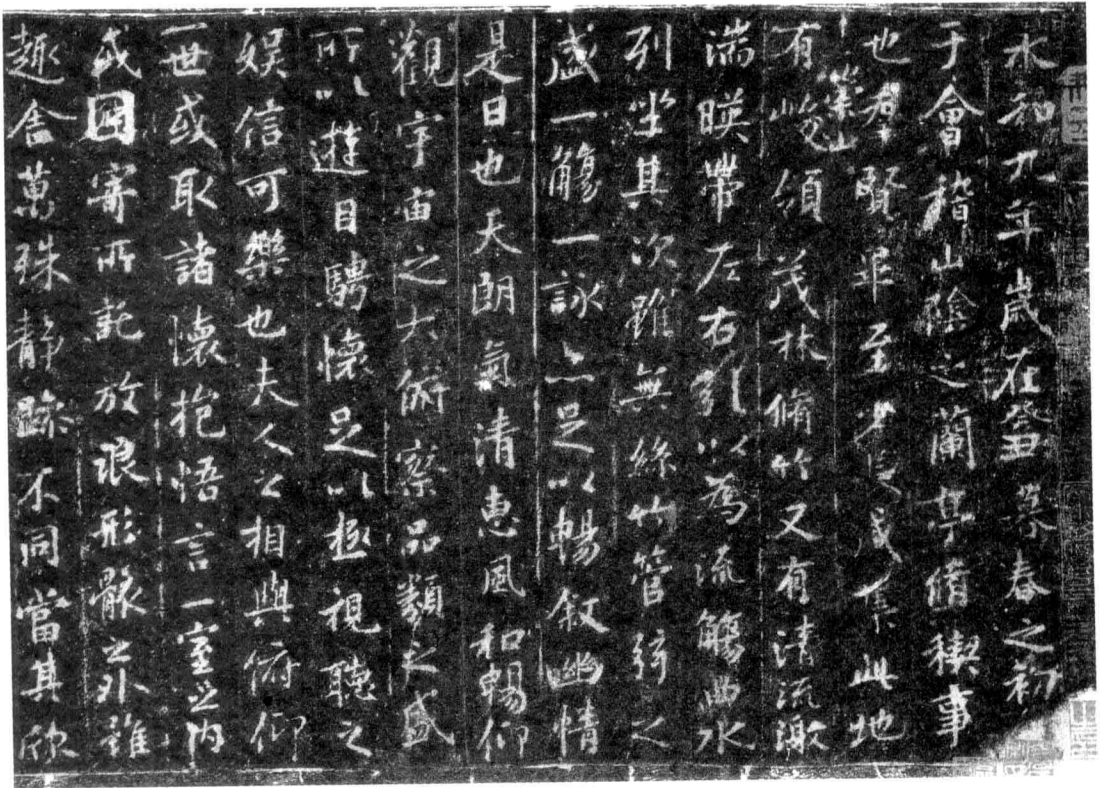 永和九年歲在癸丑暮春之初
于會稽山陰之蘭亭脩稧事
也羣賢畢至少長咸集此地
有崇山峻領茂林脩竹又有清流激
湍暎帶左右引以為流觴曲水
列坐其次雖無絲竹管弦之
盛一觴一詠亦足以暢敘幽情
是日也天朗氣清惠風和暢仰
觀宇宙之大俯察品類之盛
所以遊目騁懷足以極視聽之
娛信可樂也夫人之相與俯仰
一世或取諸懷抱悟言一室之內
或因寄所託放浪形骸之外雖
趣舍萬殊靜躁不同當其欣